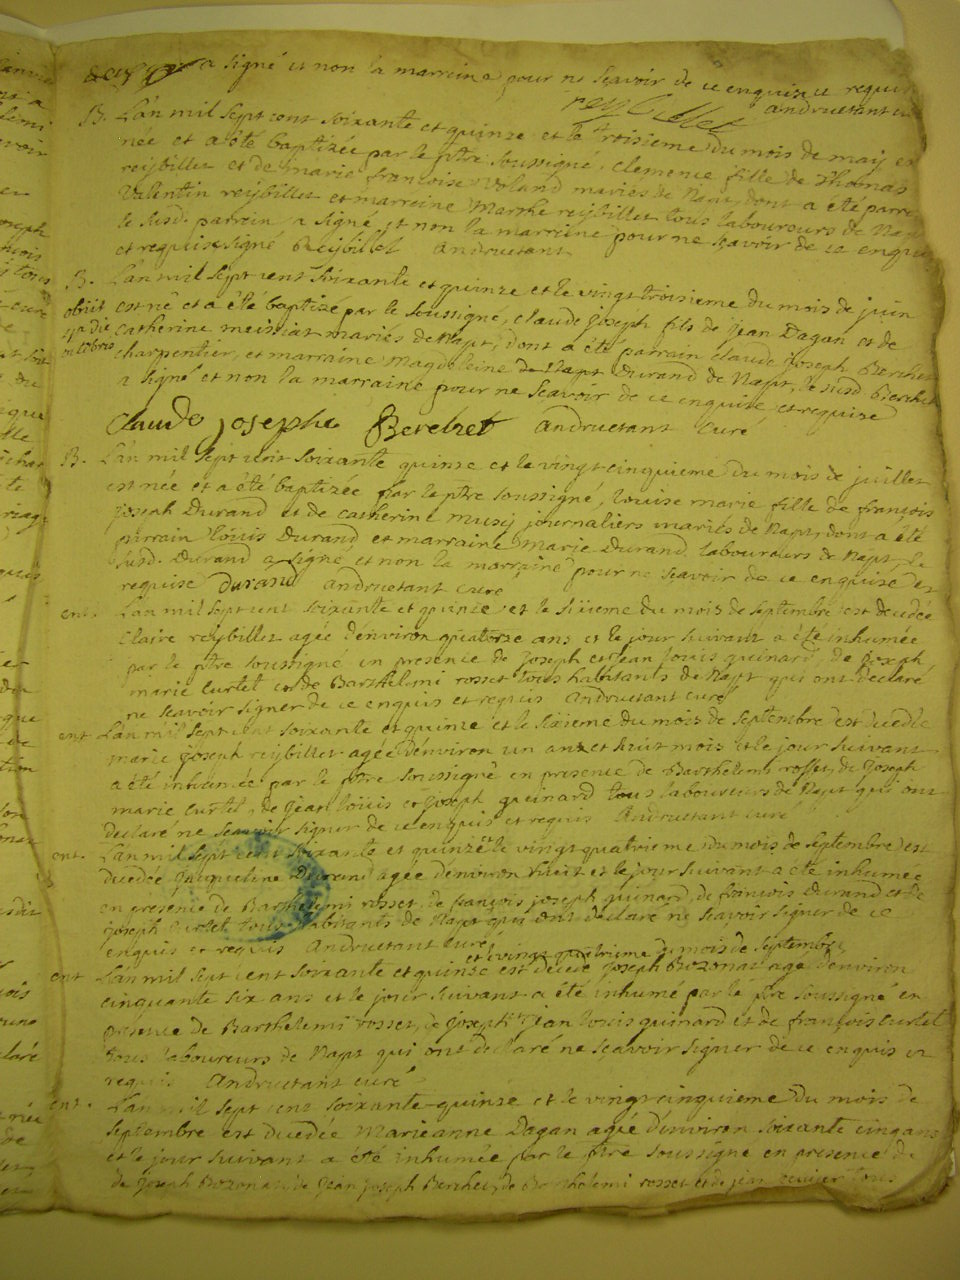 a signé et non la marraine pour ne scavoir de ce enquize et requise
reybillet andruetant
B. L'an mil sept cent soixante et quinze et le troisieme du mois de maij est
née et a été baptizée par le ptre soussigné, clemence fille de Thomas
reijbillet et de marie francoise voland mariés de Napt, dont a été parrein
Valentin reijbillet et marreine Marthe reijbillet tous laboureurs de Napt
le susd. parrein a signé et non la marreine pour ne scavoir de ce enquise
et requise signé Reijbillet andruetant
B. L'an mil sept cent soixante et quinze et le vingt troisieme du mois de juin
obiit est né et a été baptizé par le soussigné, claude joseph fils de jean Dagan et de
4a die catherine meissiat mariés de Napt, dont a été parrain claude joseph Berchet
octobris charpentier, et marraine Magdeleine de Napt Durand de Napt, le susd Berchet
a signé et non la marraine pour ne scavoir de ce enquise et requise
Claude josephe Berchet andruetant curé
B. L'an mil sept cent soixante quinze et le vingt cinquieme du mois de juillet
est née et a été baptizée par le ptre soussigné, louise marie fille de françois
joseph Durand et de catherine musij journaliers mariés de Napt, dont a été
parrain Louis Durand et marraine marie Durand laboureurs de Napt, le
susd. Durand a signé et non la marraine pour ne scavoir de ce enquise et
requise durand andruetant curé
ent. L'an mil sept cent soixante et quinze et le sixieme du mois de septembre est decedée
claire reijbillet agée d'environ quatorze ans et le jour suivant a été inhumée
par le ptre soussigné en presence de joseph et jean Louis guinard, de joseph
marie curtet et de Barthelemi rosset tous habitants de Napt qui ont declaré
ne scavoir signer de ce enquis et requis andruetant curé
ent L'an mil sept cent soixante et quinze et le sixieme du mois de septembre est decedée
marie joseph reijbillet agée d'environ un an et huit mois et le jour suivant
a été inhumée par le ptre soussigné en presence de Barthelemi rosset, de joseph
marie curtet, de jean louis et joseph guinard tous laboureurs de Napt qui ont
declaré ne scavoir signer de ce enquis et requis andruetant curé
ent. L'an mil sept cent soixante et quinze et le vingt quatrieme du mois de septembre est
decedée jacqueline Durand agée d'environ huit et le jour suivant a eté inhumée
en presence de Barthelemi rosset, de françois joseph guinard, de françois Durand et de
joseph curtet tous habitants de Napt qui ont declaré ne scavoir signer de ce
enquis et requis andruetant curé
et vingt quatrieme du mois de septembre
ent L'an mil sept cent soixante et quinse est decedé joseph Bozonat agé d'environ
cinquante six ans et le jour suivant a été inhumé par le ptre soussigné en
presence de Barthelemi rosset, de joseph et jean louis guinard et de françois curtet
tous laboureurs de Napt qui ont declaré ne scavoir signer de ce enquis et
requis andruetant curé
ent. L'an mil sept cent soixante-quinze et le vingt cinquieme du mois de
septembre est decedée Marieanne Dagan agée d'environ soixante cinq ans
et le jour suivant a été inhumée par le ptre soussigné en presence de
de joseph Bozonat, de jean joseph Berchet, de Barthelemi rosset et de jean tous